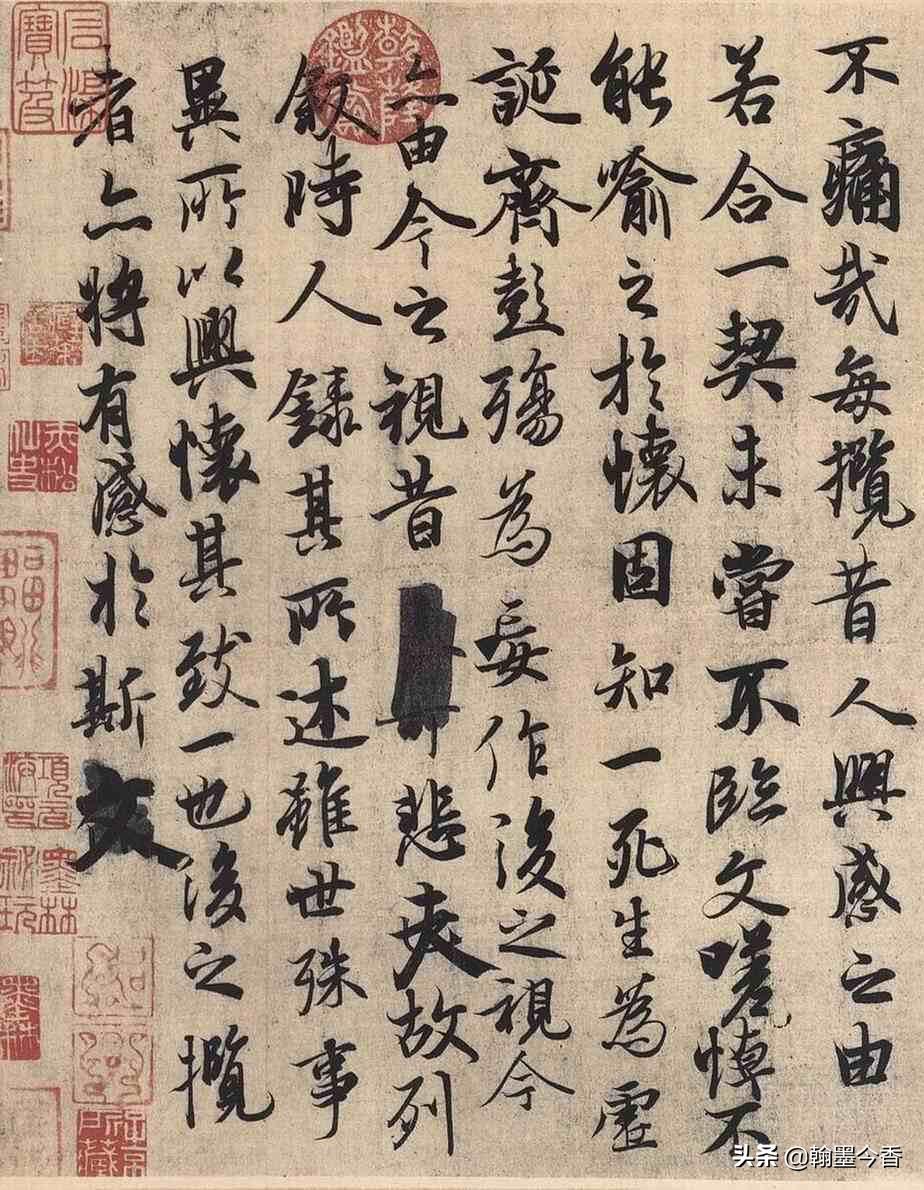 不痛哉每攬昔人興感之由
若合一契未嘗不臨文嗟悼不
能喻之於懷固知一死生為虛
誕齊彭殤為妄作後之視今
亦由今之視昔悲夫故列
敘時人錄其所述雖世殊事
異所以興懷其致一也後之攬
者亦將有感於斯文
乾隆鑑賞
石渠寶笈
头条 @翰墨今香